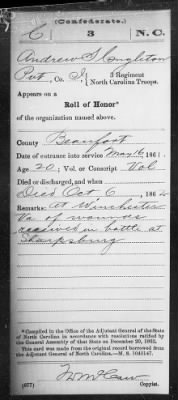 (Confederate.)
C 3 N.C.
Andrew Singleton
Pvt, Co. I, 3 Regiment
North Carolina Troops.
Appears on a
Roll of Honor*
of the organization named above.
County Beaufort
Date of entrance into service May 16, 1861.
Age 20; Vol. or Conscript Vol
Died or discharged, and when
Died Oct 6, 1862
Remarks: At Winchester
Va of wounds
received in battle at
Sharpsburg
*Compiled in the Office of the Adjutant General of the State
of North Carolina in accordance with resolutions ratified by
the General Assembly of that State on December
This card was made from the original record borrowed from
the Adjutant General of North Carolina.—M. S.
(677) Copyist.